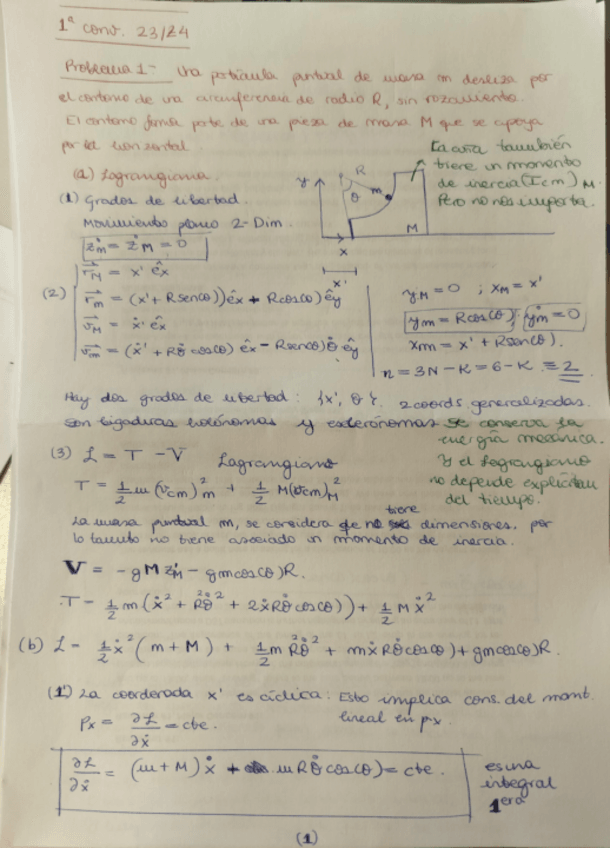 1ª conv. 23/24
Problema 1- Una partícula puntual de masa m desliza por
el contorno de una circunferencia de radio R, sin rozamiento.
El contorno forma parte de una pieza de masa M que se apoya
por la horizontal
(a) Lagrangiana.
(1) Grados de libertad.
Movimiento plano 2-Dim.
ż_m = ż_M = 0
y R θ m M x x'
La cuña también
tiene un momento
de inercia (Icm) M.
Pero no nos importa.
(2) r⃗_M = x' ê_x
r⃗_m = (x' + R senθ) ê_x + R cos(θ) ê_y
v⃗_M = ẋ' ê_x
v⃗_m = (ẋ' + Rθ̇ cosθ) ê_x - R sen(θ) θ̇ ê_y
y_M = 0 ; x_M = x'
y_m = R cos(θ) ; ẏ_m = 0
x_m = x' + R senθ).
n = 3N - K = 6 - K = 2
Hay dos grados de libertad: {x', θ}. 2 coords. generalizadas.
Son ligaduras holónomas y esclerónomas
Se conserva la
energía mecánica.
Y el Lagrangiano
no depende
del tiempo.
(3) L = T - V Lagrangiano
T = 1/2 m (v_cm)²_m + 1/2 M (v_cm)²_M
La masa puntual m, se considera que no tiene dimensiones, por
lo tanto no tiene asociado un momento de inercia.
V = -gM z_M - gm cos(θ)R.
T = 1/2 m (ẋ² + R²θ̇² + 2ẋRθ̇ cos(θ)) + 1/2 M ẋ²
(b) L = 1/2 ẋ² (m + M) + 1/2 m R²θ̇² + mẋRθ̇ cos(θ) + gm cos(θ)R.
(1') La coordenada x' es cíclica: Esto implica cons. del mont.
lineal en p_x.
P_x = ∂L/∂ẋ = cte.
∂L/∂ẋ = (m + M) ẋ + mRθ̇ cos(θ) = cte.
es una
integral
1era
(1)